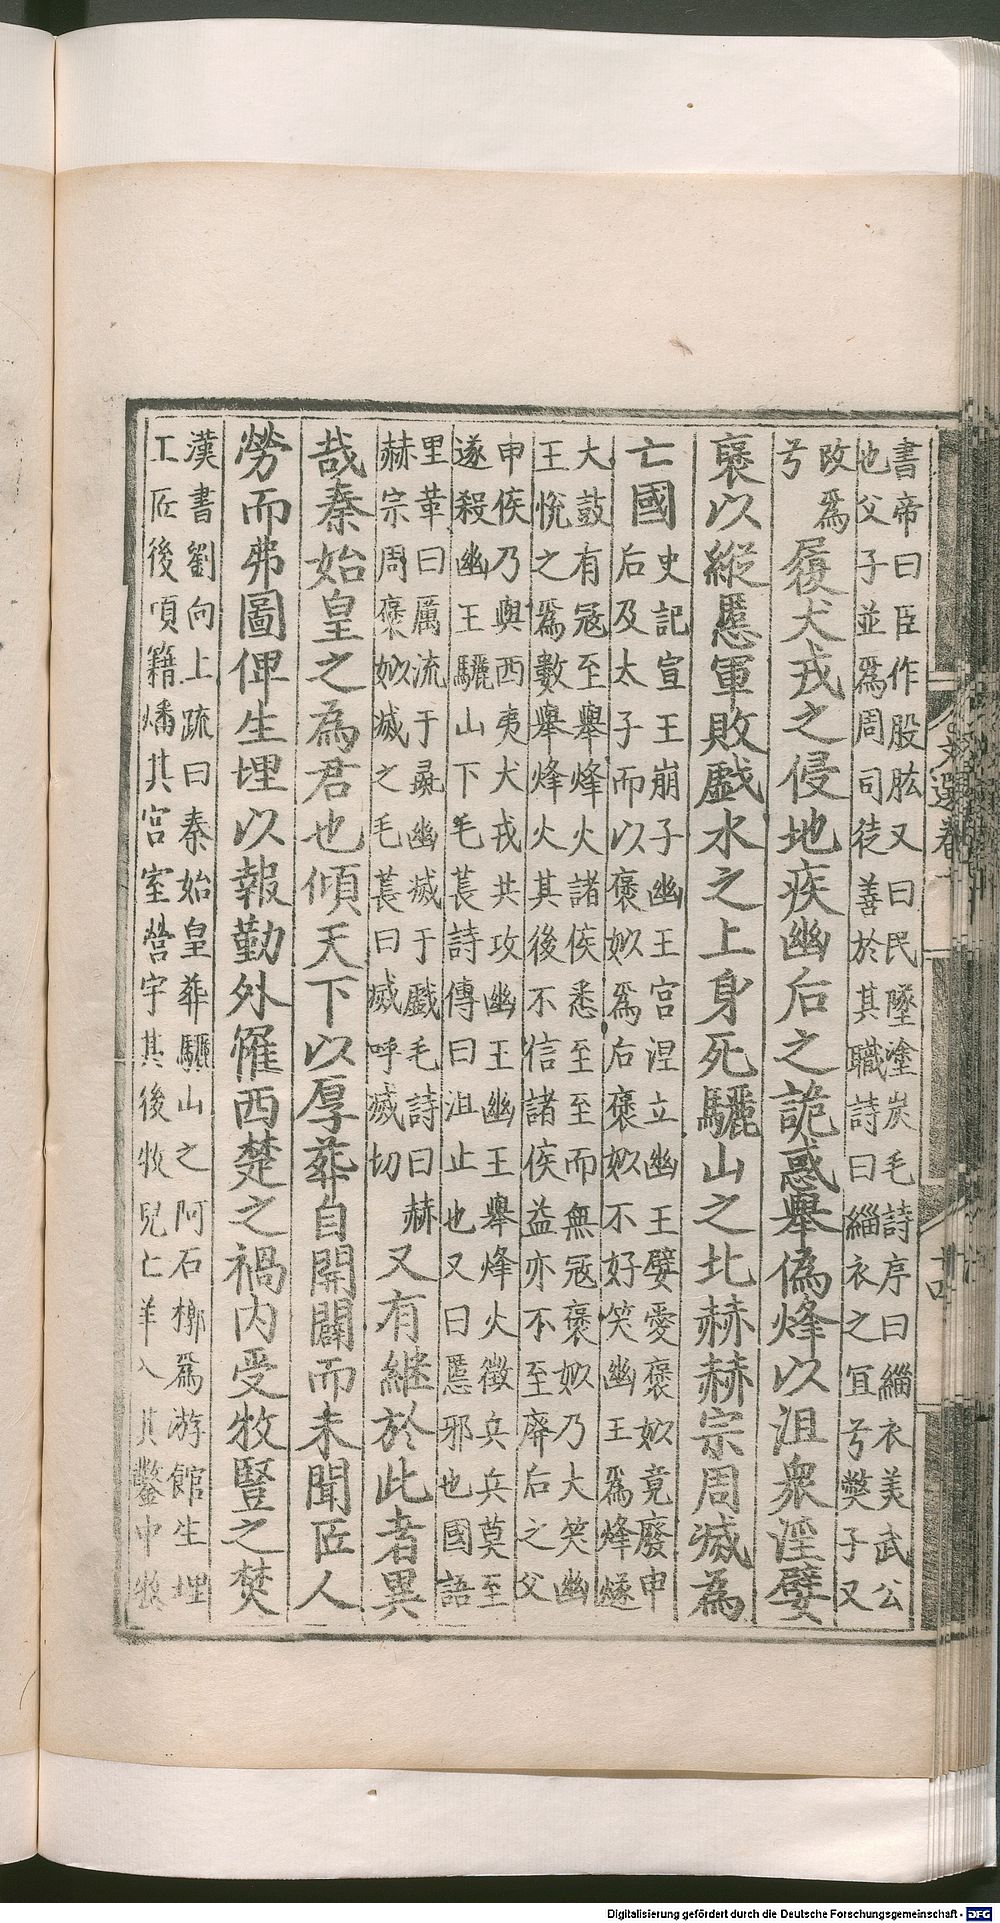 書帝曰臣作股肱又曰民墜塗炭毛詩序曰緇衣美武公
也父子並爲周司徒善於其職詩曰緇衣之宜兮獘予又
改爲
兮
履犬戎之侵地疾幽后之詭惑舉偽烽以沮衆淫嬖
褒以縱慝軍敗戲水之上身死驪山之北赫赫宗周烕為
亡國
史記宣王崩子幽王宮湼立幽王嬖愛褒姒竟廢申
后及太子而以褒姒爲后褒姒不好笑幽王爲烽燧
大鼓有冦至舉烽火諸侯悉至至而無冦褒姒乃大笑幽
王悅之爲數舉烽火其後不信諸侯益亦不至廢后之父
申侯乃與西夷犬戎共攻幽王幽王舉烽火徵兵兵莫至
遂殺幽王驪山下毛萇詩傳曰沮止也又曰慝邪也國語
里革曰厲流于彘幽烕于戲毛詩曰赫
赫宗周褒姒滅之毛萇曰烕呼滅切
又有継於此者異
哉秦始皇之為君也傾天下以厚葬自開闢而未聞匠人
勞而弗圖俾生埋以報勤外罹西楚之禍内受牧豎之焚
漢書劉向上疏曰秦始皇葬驪山之阿石槨爲游館生埋
工匠後項籍燔其宮室營宇其後牧兒亡羊入其鑿中牧
文選卷十
十四
Digitalisierung gefördert durch die Deutsche Forschungsgemeinschaft - DFG